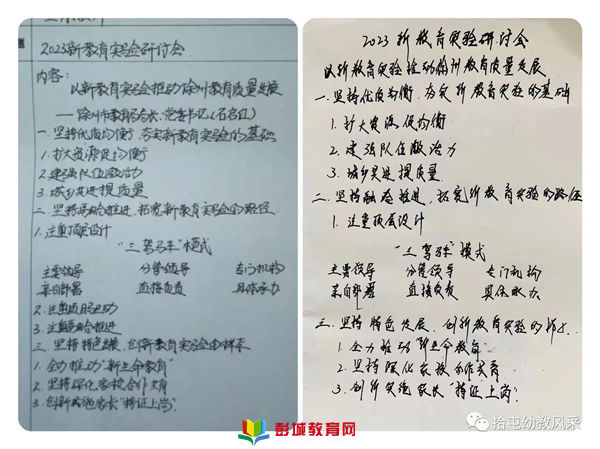 2023新教育实验研讨会
内容:
以新教育实验推动徐州教育质量发展
——徐州市教育局局长、党委书记(石启红)
一、坚持优质均衡,夯实新教育实验的基础
1. 扩大资源促均衡
2. 建强队伍激活力
3. 城乡共进提质量
二、坚持融合推进,拓宽新教育实验的路径
1. 注重顶层设计
"三驾马车"模式
主要领导 分管领导 专门机构
亲自部署 直接负责 具体承办
2. 注重项目驱动
3. 注重融合推进
三、坚持特色发展,创新教育实验的样态
1. 全力推动"新生命教育"
2. 坚持深化家校合作共育
3. 创新实施家长"持证上岗"
2023新教育实验研讨会
以新教育实验推动徐州教育质量发展
一、坚持优质均衡,夯实新教育实验的基础
1. 扩大资源促均衡
2. 建强队伍激活力
3. 城乡共进提质量
二、坚持融合推进,拓宽新教育实验的路径
1. 注重顶层设计
"三驾马车"模式
主要领导 分管领导 专门机构
亲自部署 直接负责 具体承办
三、坚持特色发展,创新教育实验的样态
1. 全力推动"新生命教育"
2. 坚持深化家校合作共育
3. 创新实施家长"持证上岗"
彭城教育网
拾屯幼教风采